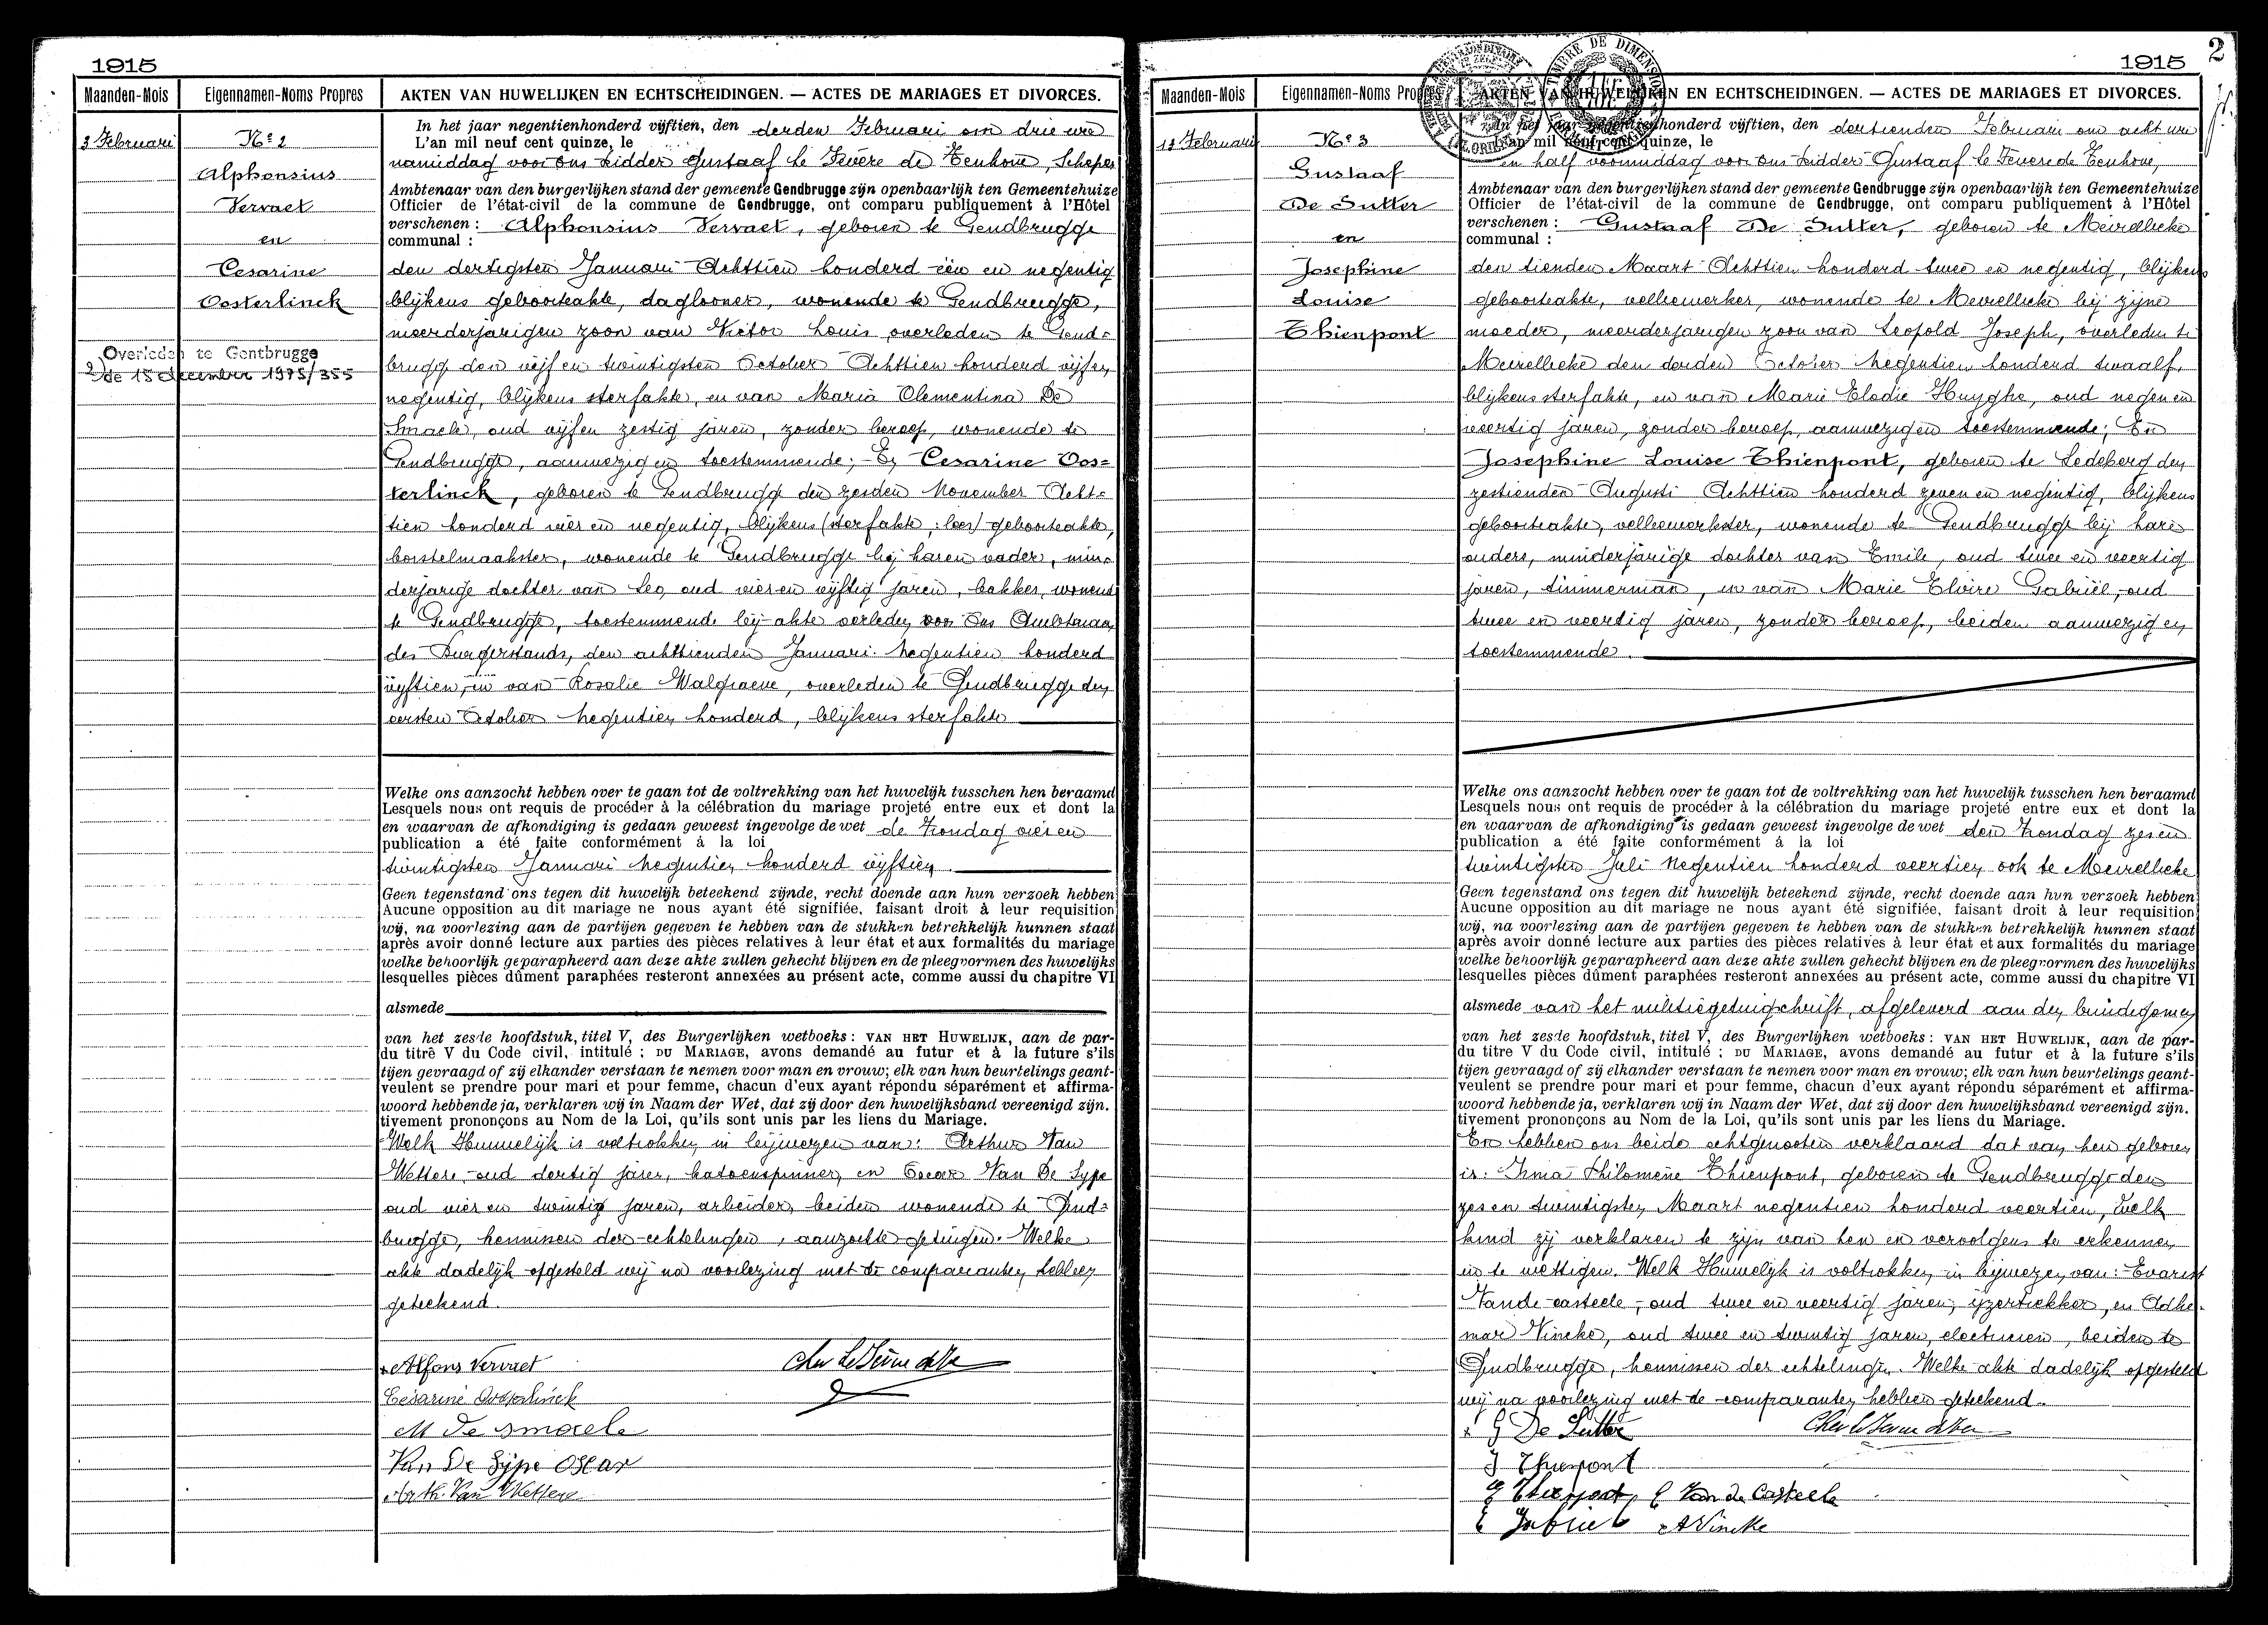 1915
Maanden-Mois Eigennamen-Noms Propres AKTEN VAN HUWELIJKEN EN ECHTSCHEIDINGEN. — ACTES DE MARIAGES ET DIVORCES.
3 Februari
Nº 2
Alphonsius
Vervaet
en
Cesarine
Oosterlinck
Overleden te Gentbrugge
de 15 december 1975/355
In het jaar negentienhonderd vijftien, den derden Februari om drie ure
L'an mil neuf cent quinze, le
namiddag voor ons Ridder Gustaaf le Fevere de Tenhove, Schepen
Ambtenaar van den burgerlijken stand der gemeente Gendbrugge zijn openbaarlijk ten Gemeentehuize
Officier de l'état-civil de la commune de Gendbrugge, ont comparu publiquement à l'Hôtel
verschenen : Alphonsius Vervaet, geboren te Gendbrugge
communal :
den dertigsten Januari Achttien honderd één en negentig
blijkens geboorteakte, daglooner, wonende te Gendbrugge,
meerderjarigen zoon van Victor Louis, overleden te Gend=
brugge den vijf en twintigsten October Achttien honderd vijf en
negentig, blijkens sterfakte, en van Maria Clementina De
Smaele, oud vijf en zestig jaren, zonder beroep, wonende te
Gendbrugge, aanwezig en toestemmende; En Cesarine Oos=
terlinck, geboren te Gendbrugge den zesden November Acht=
tien honderd vier en negentig, blijkens (sterfakte ; lees) geboorteakte,
borstelmaakster, wonende te Gendbrugge bij haren vader, min=
derjarige dochter van Leo, oud vier en vijftig jaren, bakker, wonend
te Gendbrugge, toestemmende bij akte verleden voor Ons Ambtenaar
des Burgerstands, den achttienden Januari negentien honderd
vijftien, en van Rosalie Walgraeve, overleden te Gendbrugge den
eersten October negentien honderd, blijkens sterfakte
Welke ons aanzocht hebben over te gaan tot de voltrekking van het huwelijk tusschen hen beraamd
Lesquels nous ont requis de procéder à la célébration du mariage projeté entre eux et dont la
en waarvan de afkondiging is gedaan geweest ingevolge de wet de Zondag vier en
publication a été faite conformément à la loi
twintigsten Januari negentien honderd vijftien.
Geen tegenstand ons tegen dit huwelijk beteekend zijnde, recht doende aan hun verzoek hebben
Aucune opposition au dit mariage ne nous ayant été signifiée, faisant droit à leur requisition
wij, na voorlezing aan de partijen gegeven te hebben van de stukken betrekkelijk hunnen staat
après avoir donné lecture aux parties des pièces relatives à leur état et aux formalités du mariage
welke behoorlijk geparapheerd aan deze akte zullen gehecht blijven en de pleegvormen des huwelijks
lesquelles pièces dûment paraphées resteront annexées au présent acte, comme aussi du chapitre VI
alsmede
van het zesde hoofdstuk, titel V, des Burgerlijken wetboeks : VAN HET HUWELIJK, aan de par-
du titre V du Code civil, intitulé : DU MARIAGE, avons demandé au futur et à la future s'ils
tijen gevraagd of zij elkander verstaan te nemen voor man en vrouw; elk van hun beurtelings geant-
veulent se prendre pour mari et pour femme, chacun d'eux ayant répondu séparément et affirma-
woord hebbende ja, verklaren wij in Naam der Wet, dat zij door den huwelijksband vereenigd zijn.
tivement prononçons au Nom de la Loi, qu'ils sont unis par les liens du Mariage.
Welk Huwelijk is voltrokken in bijwezen van: Arthur Van
Wettere, oud dertig jaren, katoenspinner, en Oscar Van De Sype
oud vier en twintig jaren, arbeider, beiden wonende te Gend=
brugge, kennissen der echtelingen, aanzochte getuigen. Welke
akte dadelijk opgesteld wij na voorlezing met de comparanten hebben
geteekend.
Alfons Vervaet
Cesarine Oosterlinck
M De Smaele
Van De Sijpe Oscar
Arth. Van Wettere
1915
2
Maanden-Mois Eigennamen-Noms Propres AKTEN VAN HUWELIJKEN EN ECHTSCHEIDINGEN. — ACTES DE MARIAGES ET DIVORCES.
TIMBRE DE DIMENSION
13 Februari
Nº 3
Gustaaf
De Sutter
en
Josephine
Louise
Thienpont
In het jaar negentienhonderd vijftien, den dertienden Februari om acht ure
L'an mil neuf cent quinze, le
en half voormiddag voor ons Ridder Gustaaf le Fevere de Tenhove,
Ambtenaar van den burgerlijken stand der gemeente Gendbrugge zijn openbaarlijk ten Gemeentehuize
Officier de l'état-civil de la commune de Gendbrugge, ont comparu publiquement à l'Hôtel
verschenen : Gustaaf De Sutter, geboren te Meirelbeke
communal :
den tienden Maart Achttien honderd twee en negentig, blijkens
geboorteakte, velbewerker, wonende te Meirelbeke bij zijne
moeder, meerderjarigen zoon van Leopold Joseph, overleden te
Meirelbeke den derden October negentien honderd twaalf,
blijkens sterfakte, en van Marie Elodie Huyghe, oud negen en
veertig jaren, zonder beroep, aanwezig en toestemmende; En
Josephine Louise Thienpont, geboren te Ledeberg den
zestienden Augusti Achttien honderd zeven en negentig, blijkens
geboorteakte, velbewerkster, wonende te Gendbrugge bij hare
ouders, minderjarige dochter van Emile, oud twee en veertig
jaren, timmerman, en van Marie Elvire Gabriël, oud
twee en veertig jaren, zonder beroep, beiden aanwezig en
toestemmende.
Welke ons aanzocht hebben over te gaan tot de voltrekking van het huwelijk tusschen hen beraamd
Lesquels nous ont requis de procéder à la célébration du mariage projeté entre eux et dont la
en waarvan de afkondiging is gedaan geweest ingevolge de wet den Zondag zes en
publication a été faite conformément à la loi
twintigsten Juli negentien honderd veertien ook te Meirelbeke
Geen tegenstand ons tegen dit huwelijk beteekend zijnde, recht doende aan hun verzoek hebben
Aucune opposition au dit mariage ne nous ayant été signifiée, faisant droit à leur requisition
wij, na voorlezing aan de partijen gegeven te hebben van de stukken betrekkelijk hunnen staat
après avoir donné lecture aux parties des pièces relatives à leur état et aux formalités du mariage
welke behoorlijk geparapheerd aan deze akte zullen gehecht blijven en de pleegvormen des huwelijks
lesquelles pièces dûment paraphées resteront annexées au présent acte, comme aussi du chapitre VI
alsmede van het militiegetuigschrift, afgeleverd aan den bruidegom
van het zesde hoofdstuk, titel V, des Burgerlijken wetboeks : VAN HET HUWELIJK, aan de par-
du titre V du Code civil, intitulé : DU MARIAGE, avons demandé au futur et à la future s'ils
tijen gevraagd of zij elkander verstaan te nemen voor man en vrouw; elk van hun beurtelings geant-
veulent se prendre pour mari et pour femme, chacun d'eux ayant répondu séparément et affirma-
woord hebbende ja, verklaren wij in Naam der Wet, dat zij door den huwelijksband vereenigd zijn.
tivement prononçons au Nom de la Loi, qu'ils sont unis par les liens du Mariage.
En hebben ons beide echtgenooten verklaard dat van hen geboren
is: Irma Philomène Thienpont, geboren te Gendbrugge den
zes en twintigsten Maart negentien honderd veertien, welk
kind zij verklaren te zijn van hen en vervolgens te erkennen
en te wettigen. Welk Huwelijk is voltrokken in bijwezen van: Evarist
Van de casteele, oud twee en veertig jaren, ijzertrekker, en Adhe-
mar Vincke, oud twee en twintig jaren, electricien, beiden te
Gendbrugge, kennissen der echtelingen. Welke akte dadelijk opgesteld
wij na voorlezing met de comparanten hebben geteekend.
G De Sutter
J Thienpont
E Thienpont E Van de Casteele
E Gabriel A Vincke